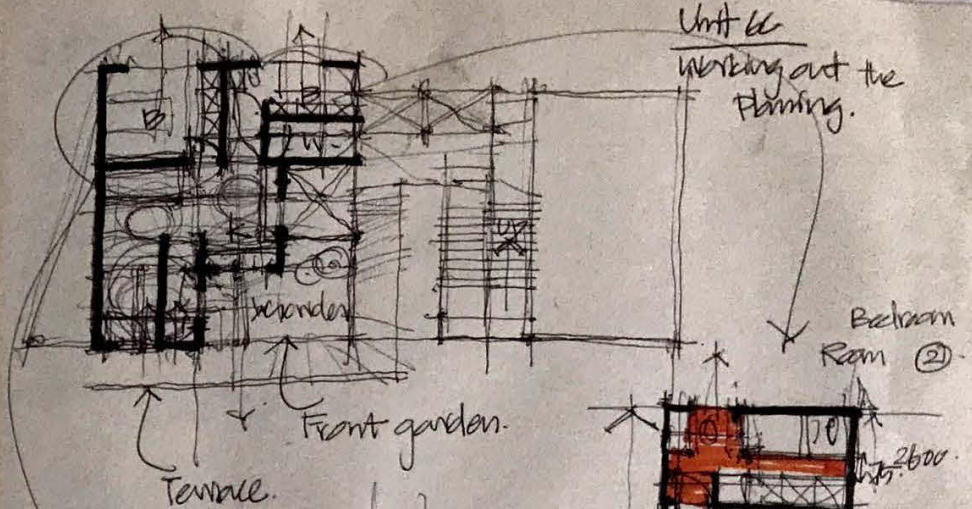 Unit 6C
Working out the
Planning.
B
B
W.
K
UP
Front garden.
Terrace.
Bedroom
Room ②
2600.